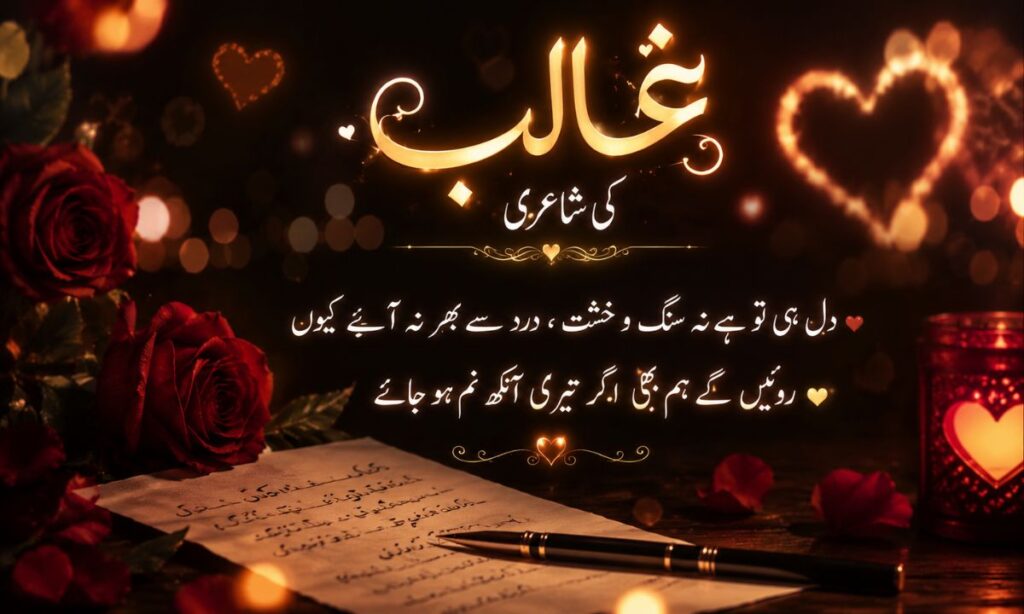 غالب
کی شاعری
دل ہی تو ہے نہ سنگ و خشت ، درد سے بھر نہ آئے کیوں
روئیں گے ہم بھی اگر تیری آنکھ نم ہو جائے